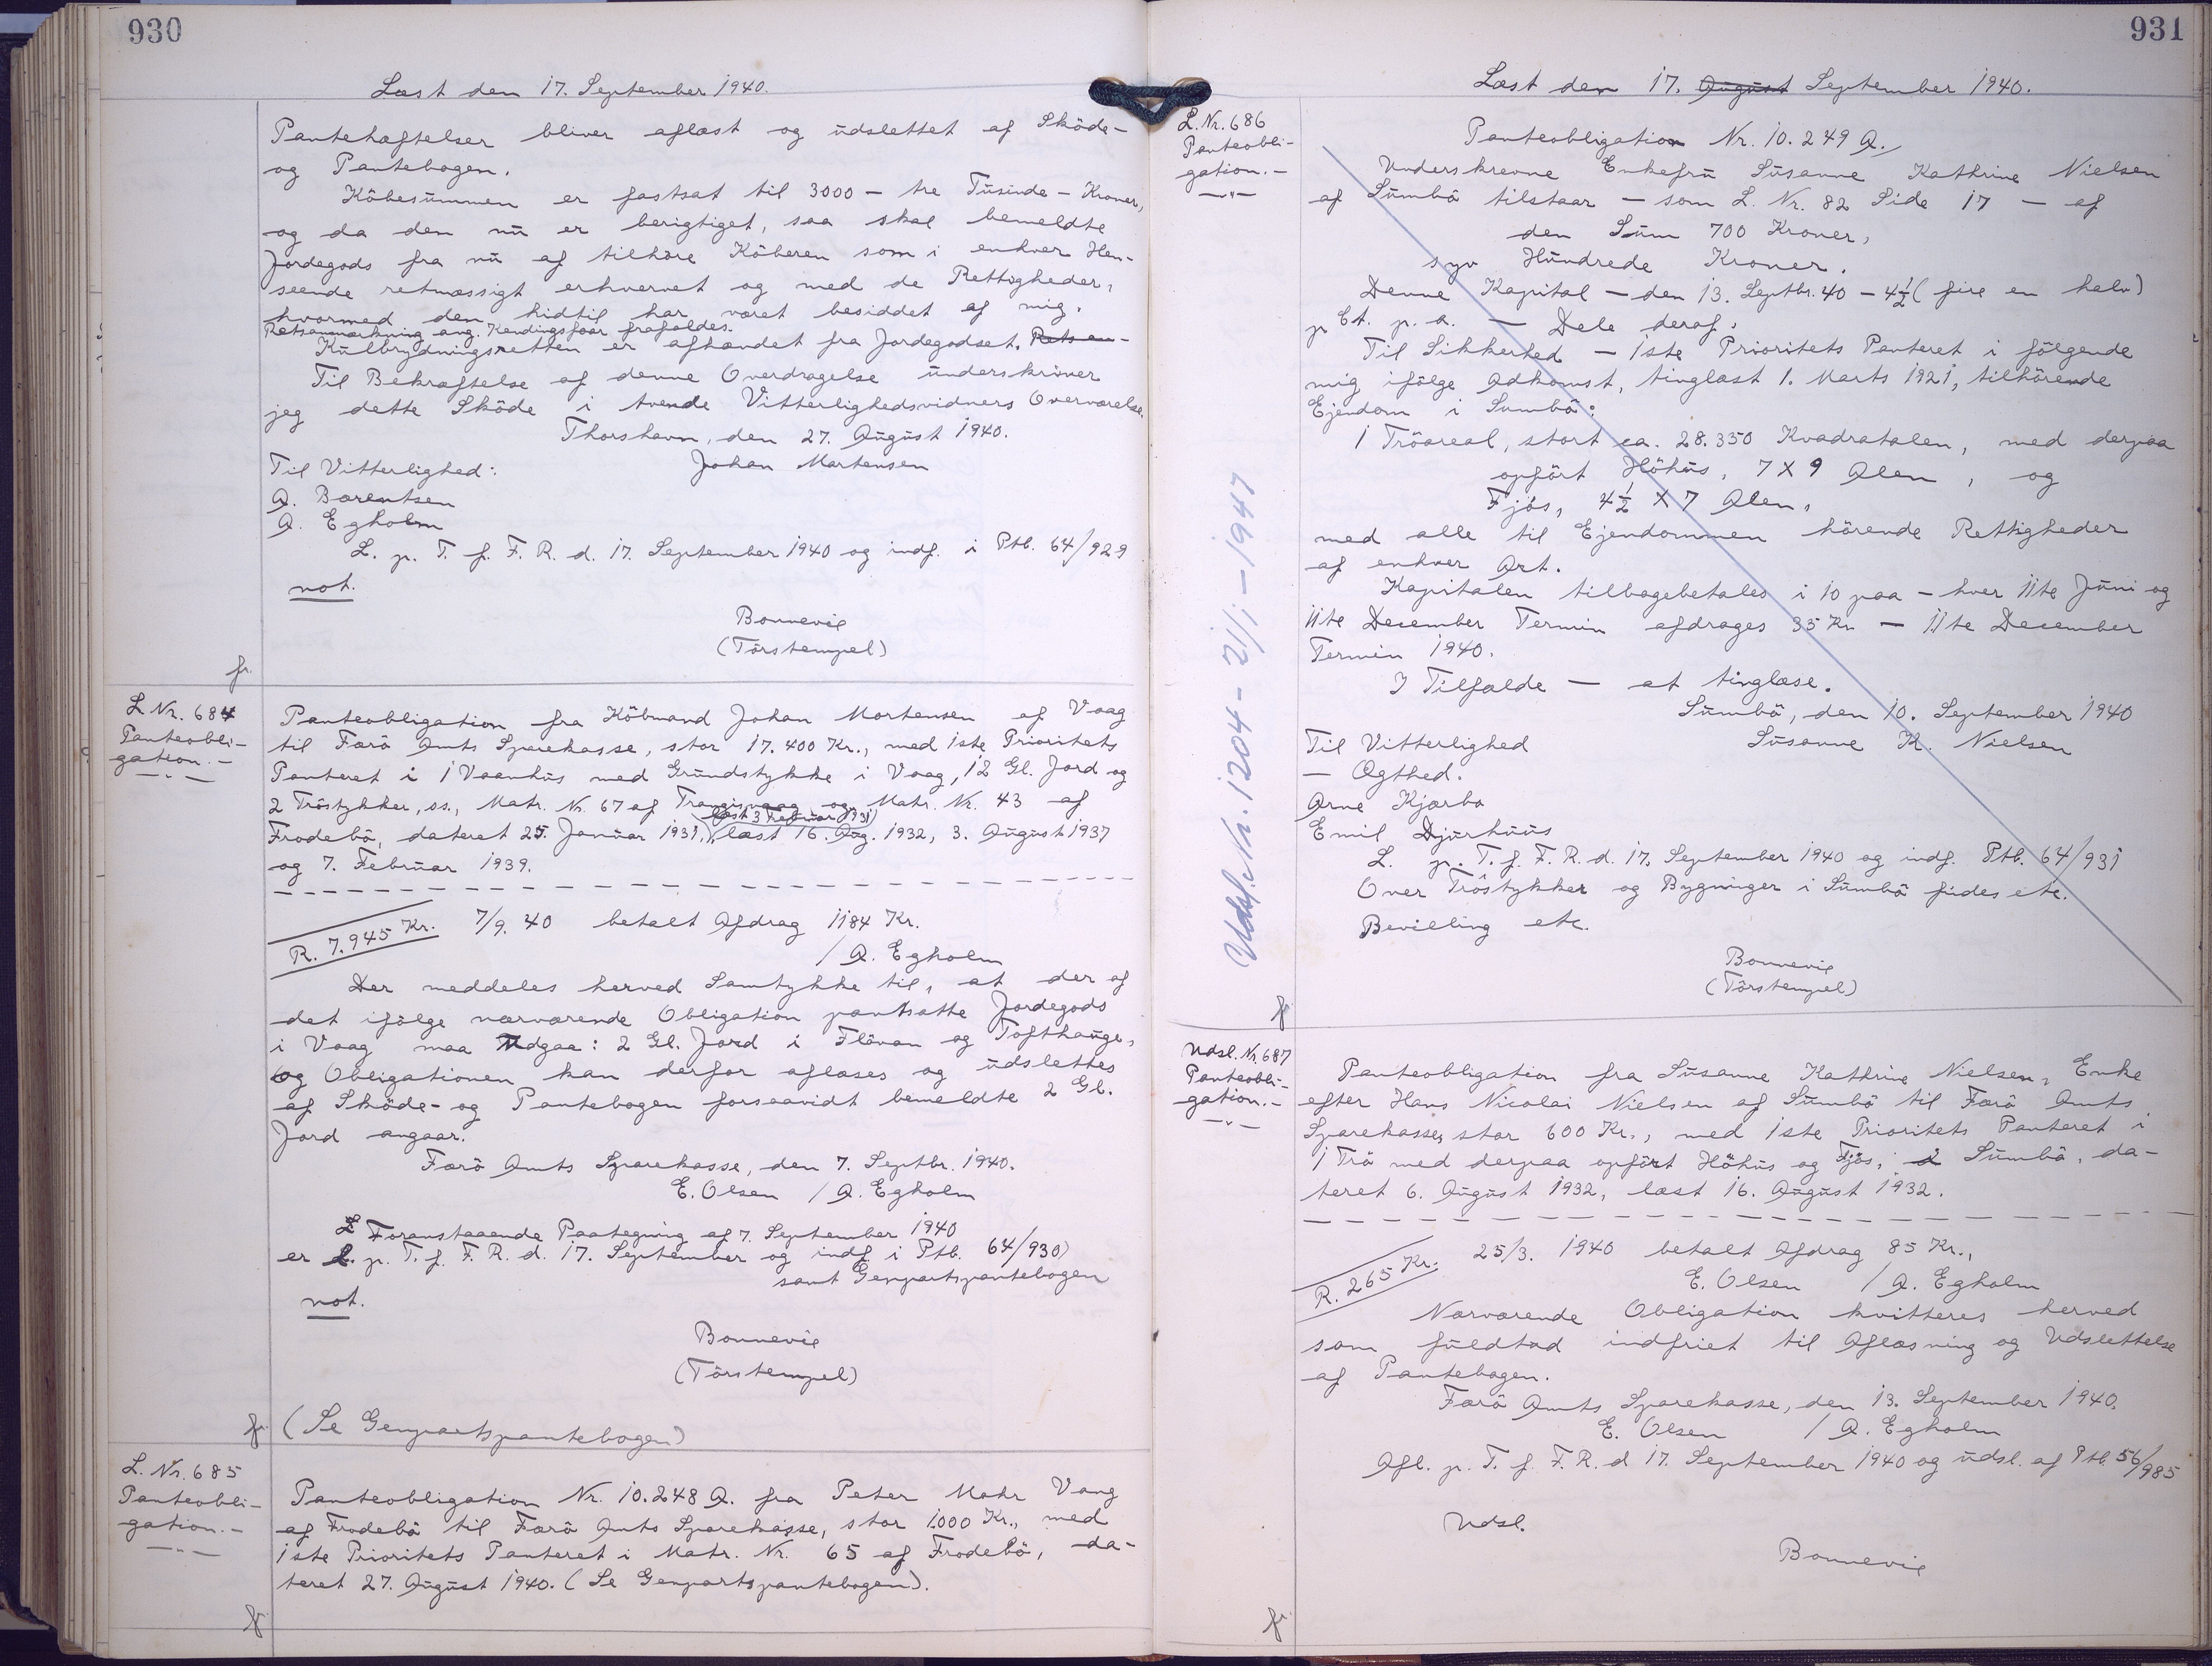 930
Læst den 17. September 1940.
Pantehæftelser bliver aflæst og udslettet af Sköde-
og Pantebogen.
Köbesummen er fastsat til 3000 - tre Tusinde - Kroner,
og da den nu er berigtiget, saa skal bemeldte
Jordegods fra nu af tilhöre Köberen som i enhver Hen-
seende retmæssigt erhvervet og med de Rettigheder,
hvormed den hidtil har været besiddet af mig.
Retsanmærkning ang. Kendingsfoar frafaldes.
Kulbrydningsretten er afhændet fra Jordegodset. Rets an-
Til Bekræftelse af denne Overdragelse underskriver
jeg dette Sköde i tvende Vitterlighedsvidners Overværelse.
Thorshavn, den 27. August 1940.
Til Vitterlighed: Johan Mortensen
A. Bærentsen
A. Egholm
L. p. T. f. F. R. d. 17. September 1940 og indf. i Ptb. 64/929
not.
Bonnevie
(Törstempel)
fr.
L Nr. 684
Panteobli-
gation.-
Panteobligation fra Köbmand Johan Mortensen af Vaag
til Færö Amts Sparekasse, stor 17.400 Kr., med 1ste Prioritets
Panteret i 1 Vaanhus med Grundstykke i Vaag, 12 Gl. Jord og
2 Tröstykker, ss., Matr. Nr. 67 af Trangisvaag og Matr. Nr. 43 af
(læst 3 Februar 1931)
Frodebö, dateret 25. Januar 1931, læst 16. Aug. 1932, 3. August 1937
og 7. Februar 1939.
R. 7.945 Kr. 7/9. 40 betalt Afdrag 1184 Kr.
/ A. Egholm
Der meddeles herved Samtykke til, at der af
det ifölge nærværende Obligation pantsatte Jordegods
i Vaag maa Udgaa: 2 Gl. Jord i Flövan og Tofthauge,
og Obligationen kan derfor aflæses og udslettes
af Sköde- og Pantebogen forsaavidt bemeldte 2 Gl.
Jord angaar.
Færö Amts Sparekasse, den 7. Septbr. 1940.
E. Olsen / A. Egholm
Foranstaaende Paategning af 7. September 1940
er L. p. T. f. F. R. d. 17. September og indf. i Ptb. 64/930)
samt Genpartspantebogen
not.
Bonnevie
(Törstempel)
fr. (Se Genpartspantebogen)
L. Nr. 685
Panteobli-
gation.-
Panteobligation Nr. 10.248 A. fra Peter Mohr Vang
af Frodebö til Færö Amts Sparekasse, stor 1.000 Kr., med
1ste Prioritets Panteret i Matr. Nr. 65 af Frodebö, da-
teret 27. August 1940. (Se Genpartspantebogen).
fr.
931
Læst den 17. August September 1940.
L. Nr. 686
Panteobli-
gation.-
Panteobligation Nr. 10.249 A.
Underskrevne Enkefru Susanne Kathrine Nielsen
af Sumbö tilstaar - som L. Nr. 82 Side 17 - af
den Sum 700 Kroner,
syv Hundrede Kroner.
Denne Kapital - den 13. Septbr. 40 - 4½ (fire en halv)
p Ct. p. a. - Dele deraf.
Til Sikkerhed - 1ste Prioritets Panteret i fölgende
mig ifölge Adkomst, tinglæst 1. Marts 1921, tilhörende
Ejendom i Sumbö:
1 Tröareal, stort ca. 28.350 Kvadratalen, med derpaa
opfört Höhus, 7 X 9 Alen, og
Fjós, 4½ X 7 Alen,
med alle til Ejendommen hörende Rettigheder
af enhver Art.
Kapitalen tilbagebetales i 10 paa - hver 11te Juni og
11te December Termin afdrages 35 Kr - 11te December
Termin 1940.
I Tilfælde - at tinglæse.
Sumbö, den 10. September 1940
Til Vitterlighed Susanne K. Nielsen
- Ægthed.
Arne Kjærbo
Emil Djurhuus
L. p. T. f. F. R. d. 17. September 1940 og indf. Ptb. 64/931
Over Tröstykker og Bygninger i Sumbö findes etc.
Bevilling etc.
Bonnevie
(Törstempel)
fr.
Udsl. Nr. 1204 - 21/1 - 1947
Udsl. Nr. 687
Panteobli-
gation.-
Panteobligation fra Susanne Kathrine Nielsen, Enke
efter Hans Nicolai Nielsen af Sumbö til Færö Amts
Sparekasse, stor 600 Kr., med 1ste Prioritets Panteret i
1 Trö med derpaa opfört Höhus og Fjós, i Sumbö, da-
teret 6. August 1932, læst 16. August 1932.
R. 265 Kr. 25/3. 1940 betalt Afdrag 85 Kr.,
E. Olsen / A. Egholm
Nærværende Obligation kvitteres herved
som fuldtud indfriet til Aflæsning og Udslettelse
af Pantebogen.
Færö Amts Sparekasse, den 13. September 1940.
E. Olsen / A. Egholm
Afl. p. T. f. F. R. d 17. September 1940 og udsl. af Ptb. 56/985
Udsl.
Bonnevie
fr.